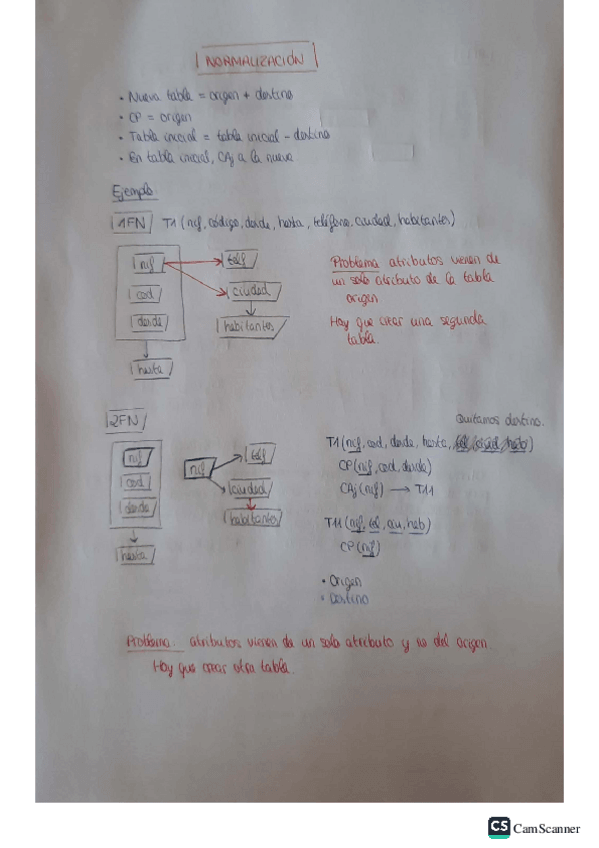 NORMALIZACIÓN
• Nueva tabla = origen + destino
• CP = origen
• Tabla inicial = tabla inicial - destino
• En tabla inicial, CAj a la nueva
Ejemplo:
1FN T1 (nif, código, desde, hasta, teléfono, ciudad, habitantes)
nif
telf
cod
ciudad
desde
habitantes
hasta
Problema atributos vienen de
un solo atributo de la tabla
origen
Hay que crear una segunda
tabla.
2FN
Quitamos destino.
nif
cod
desde
hasta
nif
telf
ciudad
habitantes
T1 (nif, cod, desde, hasta, tel, ciudad, hab)
CP (nif, cod, desde)
CAj (nif) → T11
T11 (nif, tel, ciu, hab)
CP (nif)
• Origen
• Destino
Problema: atributos vienen de un solo atributo y no del origen.
Hay que crear otra tabla.
CS CamScanner